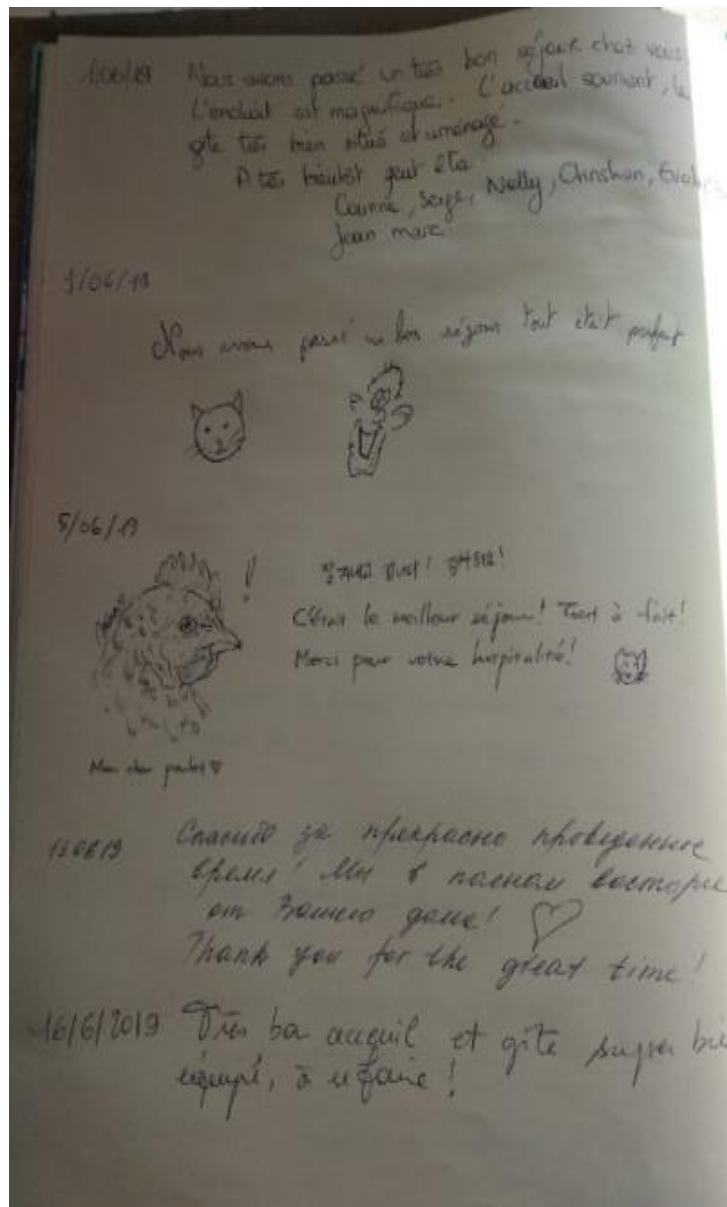 Nous avons passé un très bon séjour chez vous.
L'endroit est magnifique. L'accueil souriant, le
gîte très bien situé et aménagé.
A très bientôt peut être
Corinne, Serge, Nelly, Christian,
Jean marc
1/06/19
Nous avons passé un bon séjour tout était parfait
5/06/19
잘 지내고 갑니다! 감사해요!
C'était le meilleur séjour! Tout à fait!
Merci pour votre hospitalité!
Mon cher poulet ♡
Спасибо за прекрасно проведенное
13 06 19
время! Мы в полном восторге
от Вашего дома! ♡
Thank you for the great time!
16/6/2019 Très bon accueil et gîte super
équipé, à refaire!